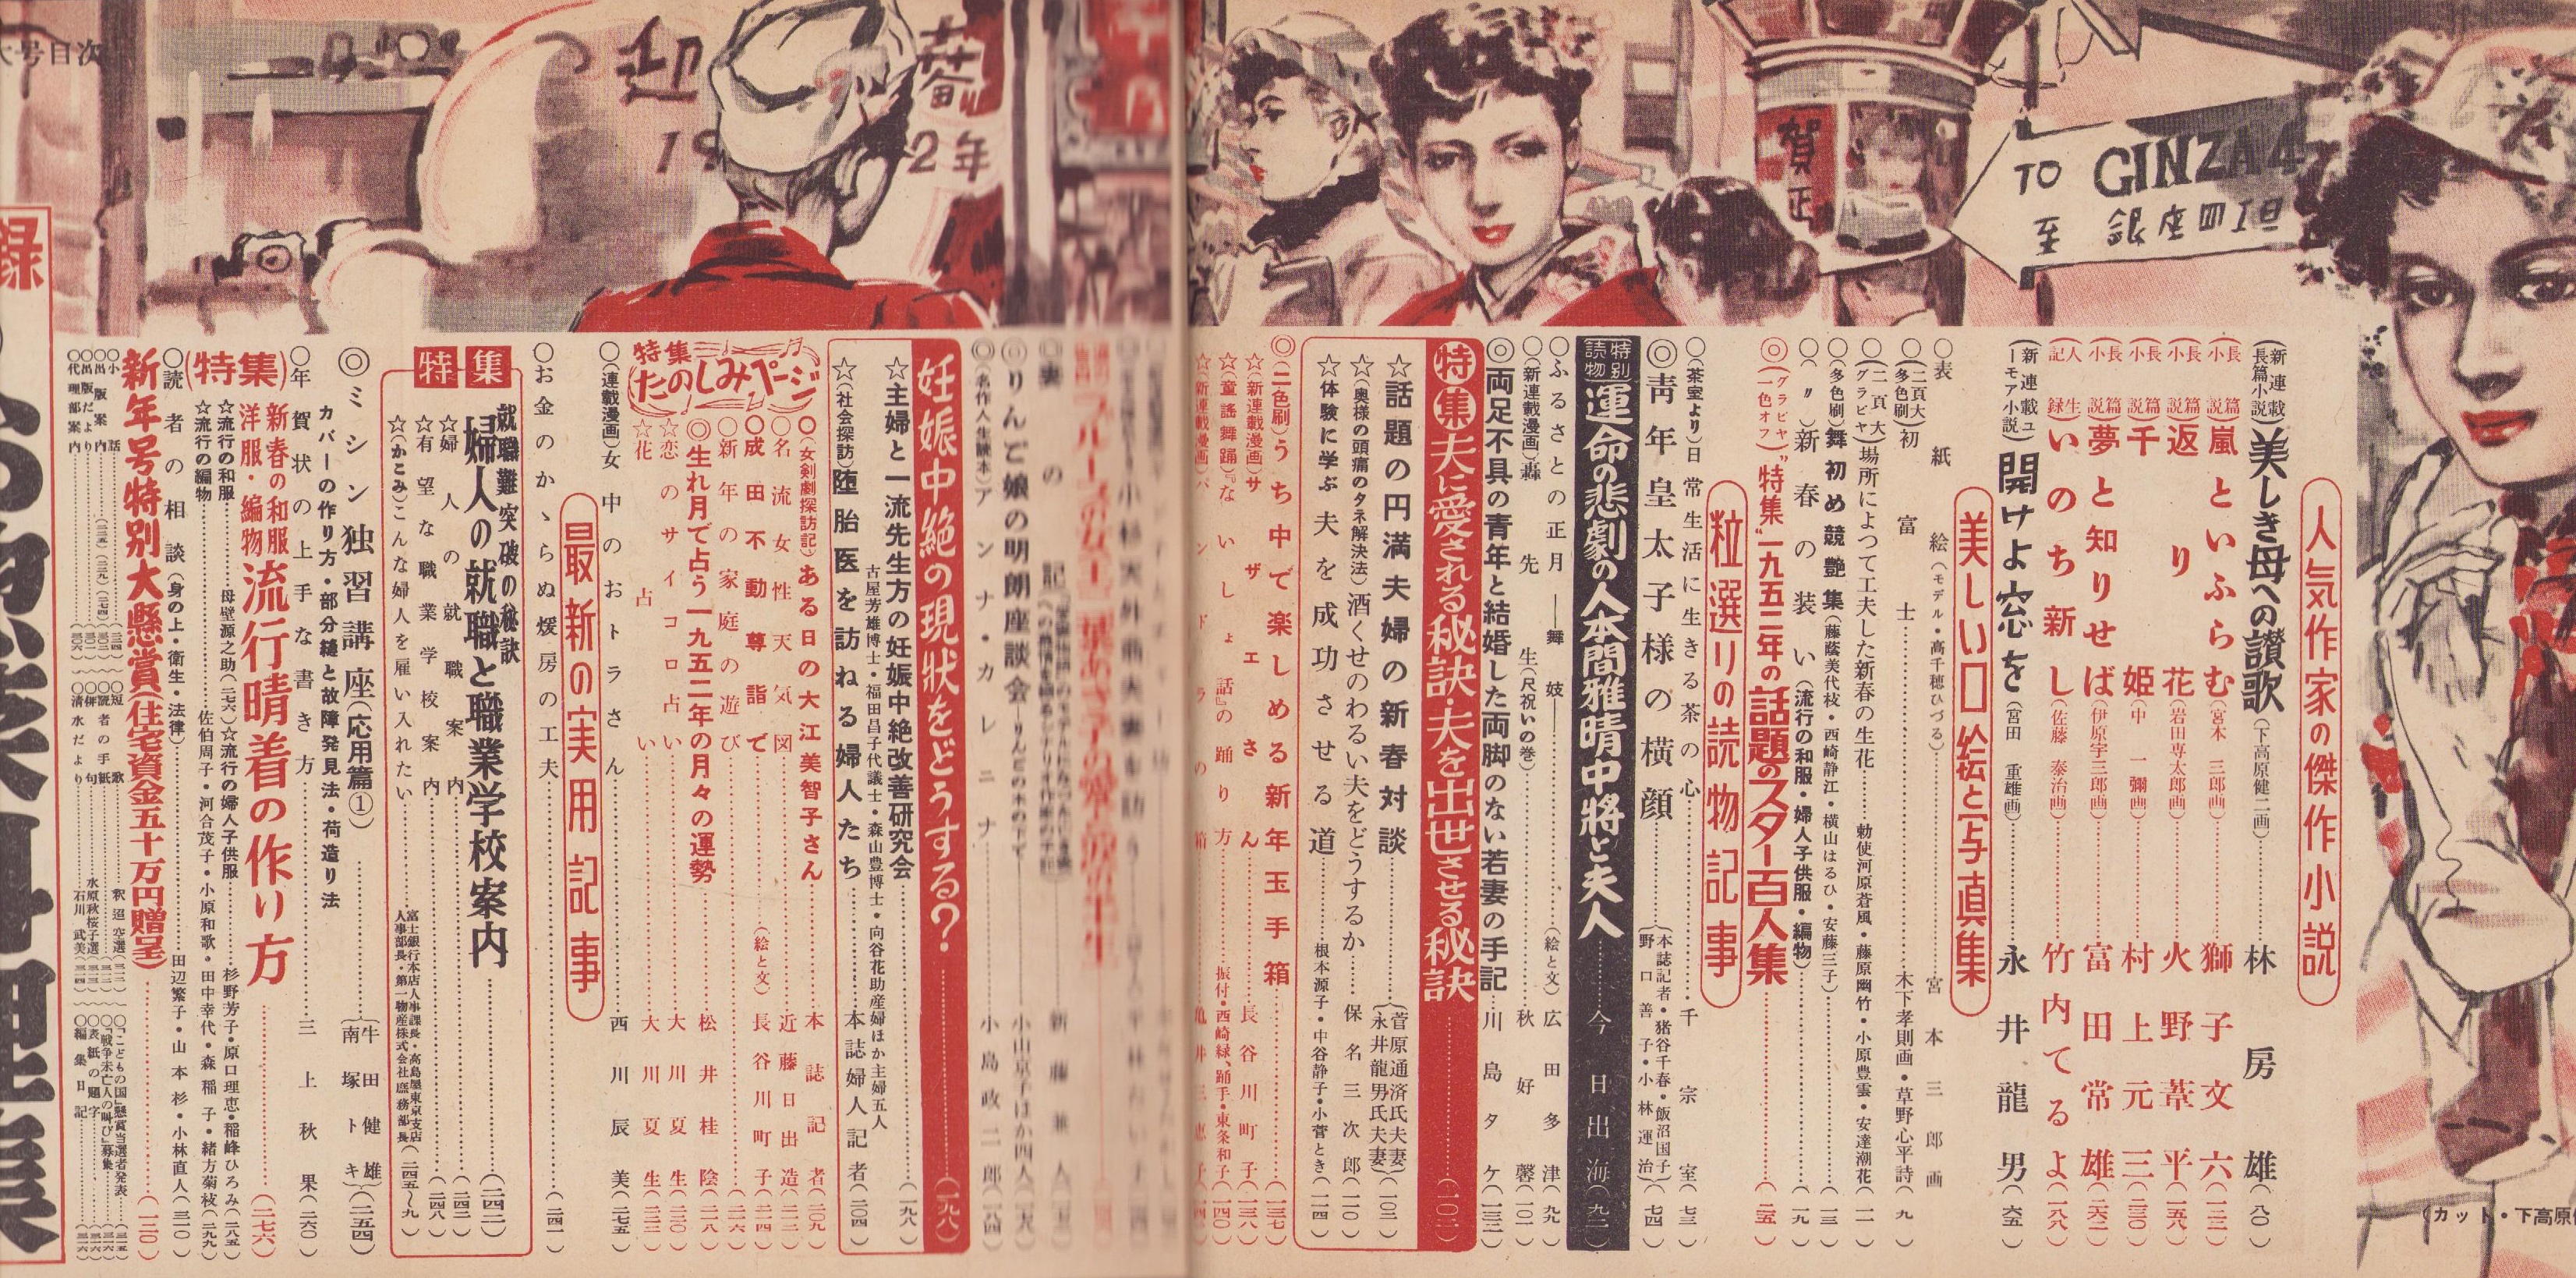 大号目次
迎春
1952年
賀正
TO GINZA 4
至 銀座四丁目
人気作家の傑作小説
(新連載長篇小説)美しき母への讃歌(下高原健二画)……林房雄(八〇)
長篇小説 嵐といふらむ(宮本三郎画)……獅子文六(一二二)
長篇小説 返り花(岩田専太郎画)……火野葦平(一五八)
長篇小説 千姫(中一彌画)……村上元三(二三〇)
長篇小説 夢と知りせば(伊原宇三郎画)……富田常雄(二六二)
人生記録 いのち新し(佐藤泰治画)……竹内てるよ(一八八)
(新連載ユーモア小説)開けよ窓を(宮田重雄画)……永井龍男(六五)
美しい口絵と写真集
○表紙絵(モデル・高千穂ひづる)……宮本三郎画
○(二頁大多色刷)初富士……木下孝則画・草野心平詩(九)
○(二頁大グラビヤ)場所によつて工夫した新春の生花……勅使河原蒼風・藤原幽竹・小原豊雲・安達潮花(一一)
○(多色刷)舞初め競艶集(藤蔭美代枝・西崎静江・横山はるひ・安藤三子)……(一三)
○(〃)新春の装い(流行の和服・婦人子供服・編物)……(一九)
◎(グラビヤ一色オフ)"特集"一九五二年の話題のスター百人集……(二五)
粒選りの読物記事
○(茶室より)日常生活に生きる茶の心……千宗室(七三)
◎青年皇太子様の横顔……(本誌記者・猪谷千春・飯沼国子・野口善子・小林運治)(七四)
特別読物 運命の悲劇の人本間雅晴中將と夫人……今日出海(九二)
○ふるさとの正月――舞妓……(絵と文)広田多津(九九)
○(新連載漫画)轟先生(尺祝いの巻)……秋好馨(一〇一)
◎両足不具の青年と結婚した両脚のない若妻の手記……川島タケ(一三二)
特集 夫に愛される秘訣・夫を出世させる秘訣……(一〇二)
☆話題の円満夫婦の新春対談……(菅原通済氏夫妻 永井龍男氏夫妻)(一〇二)
☆(奥様の頭痛のタネ解決法)酒くせのわるい夫をどうするか……保名三次郎(一一〇)
☆体験に学ぶ 夫を成功させる道……根本源子・中谷静子・小菅とき(一一四)
◎(二色刷)うち中で楽しめる新年玉手箱……(一三七)
☆(新連載漫画)サザエさん……長谷川町子(一三八)
☆(童謡舞踊)『ないしょ話』の踊り方……振付・西崎緑、踊手・東条和子(一四〇)
◎(名作人生読本)アンナ・カレニナ……小島政二郎(一八四)
◎りんご娘の明朗座談会――りんごの木の下で……小山京子ほか四人
妊娠中絶の現状をどうする?……(一九八)
☆主婦と一流先生方の妊娠中絶改善研究会……(一九八)
古屋芳雄博士・福田昌子代議士・森山豊博士・向谷花助産婦ほか主婦五人
☆(社会探訪)堕胎医を訪ねる婦人たち……本誌婦人記者(二〇四)
特集 たのしみページ
○(女剣劇探訪記)ある日の大江美智子さん……本誌記者(二〇九)
○名流女性天気図……近藤日出造(二一二)
○成田不動尊詣で……(絵と文)長谷川町子(二一四)
○新年の家庭の遊び……(二一六)
◎生れ月で占う一九五二年の月々の運勢……松井桂陰(二一八)
☆恋のサイコロ占い……大川夏生(二二〇)
☆花占い……大川夏生(二二二)
○(連載漫画)女中のおトラさん……西川辰美(二七五)
最新の実用記事
○お金のかゝらぬ煖房の工夫……(二四一)
特集
就職難突破の秘訣
婦人の就職と職業学校案内……(二四二)
☆婦人の就職案内……(二四二)
☆有望な職業学校案内……(二四八)
☆(かこみ)こんな婦人を雇い入れたい……富士銀行本店人事課長・高島屋東京支店人事部長・第一物産株式会社庶務部長(二四五〜九)
◎ミシン独習講座(応用篇①)……(牛田健雄 南塚トキ)(二五四)
カバーの作り方・部分縫と故障発見法・荷造り法
○年賀状の上手な書き方……三上秋果(二六〇)
(特集)新春の和服洋服・編物 流行晴着の作り方……(二七六)
☆流行の和服……母壁源之助(二七六)☆流行の婦人子供服……杉野芳子・原口理恵・稲峰ひろみ(二八五)
☆流行の編物……佐伯周子・河合茂子・小原和歌・田中幸代・森稲子・緒方菊枝(二九九)
○読者の相談(身の上・衛生・法律)……田辺繁子・山本杉・小林直人(三一〇)
新年号特別大懸賞(住宅資金五十万円贈呈)……(一三〇)
○小話
○出版案内
○出版だより
○代理部案内
○短歌……釈迢空選
○読者の手紙
○俳句……水原秋桜子選
○清水だより……石川武美
○「こどもの国」懸賞当選者発表
○「戦争未亡人の叫び」募集
○表紙の題字
○編集日記
(カット・下高原